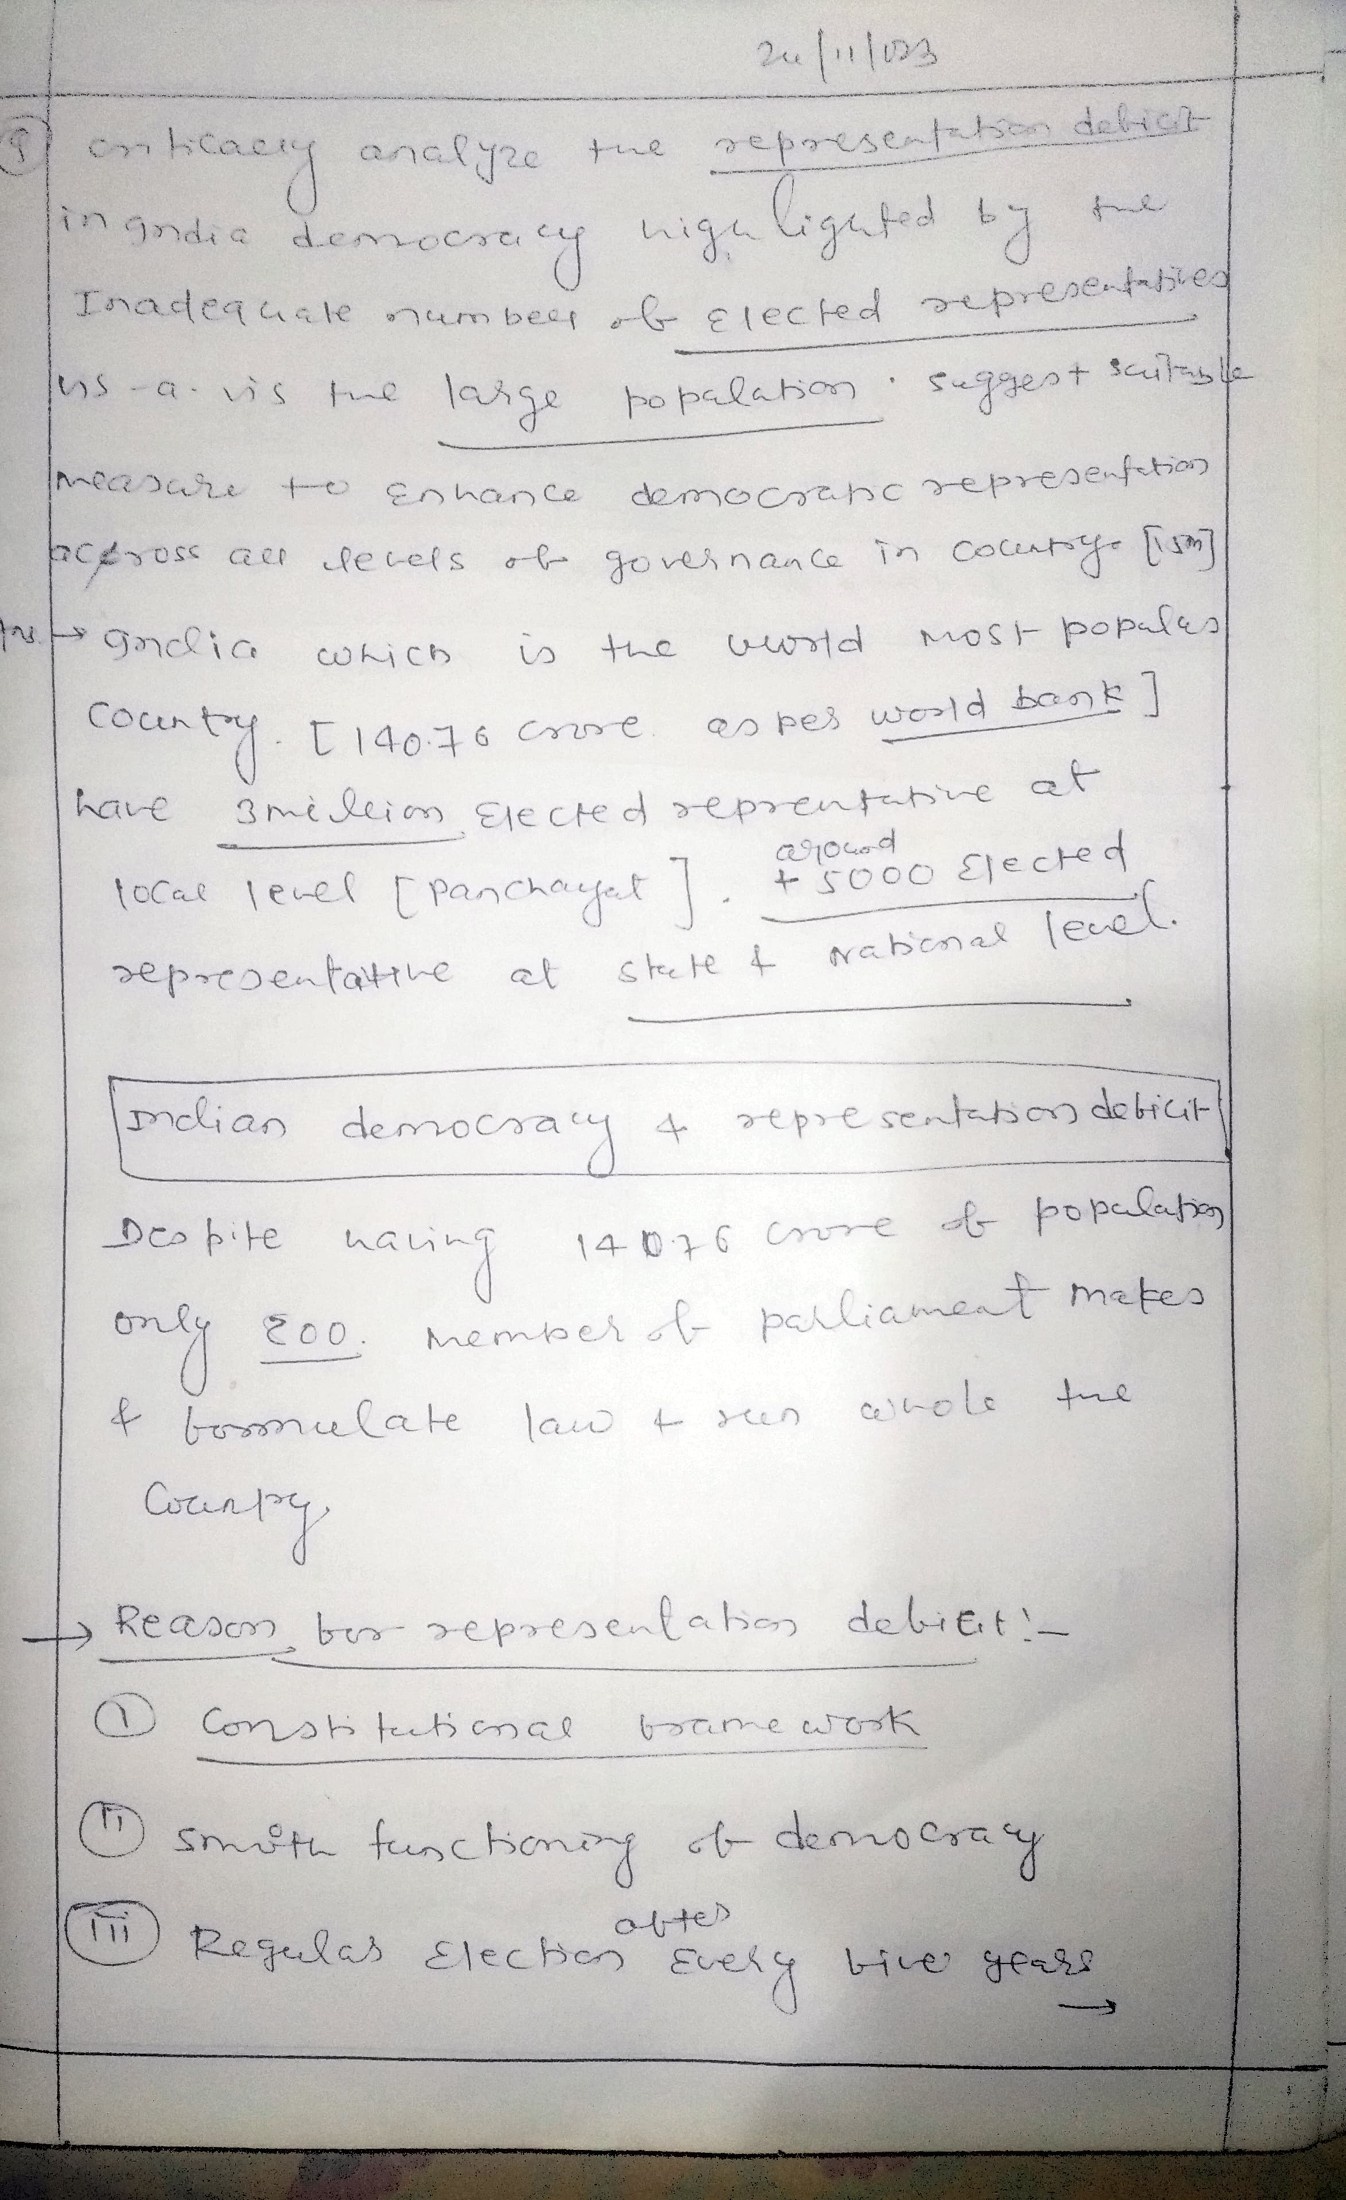 24/11/023
Q critically analyze the representation deficit
in India democracy highlighted by the
Inadequate number of Elected representatives
vis-a-vis the large population. suggest suitable
measure to Enhance democratic representation
across all levels of governance in country. [15m]
Ans. → India which is the world most populas
country. [140.76 crore as per world bank]
have 3 million Elected reprentative at
local level [Panchayat]. around + 5000 Elected
representative at state & National level.
Indian democracy & representation deficit
Despite having 140.76 crore of population
only 800. member of parliament makes
& formulate law & run whole the
Country.
→ Reason for representation deficit:-
(i) Constitutional frame work
(ii) Smoth functioning of democracy
(iii) Regular Election after Every five years
→